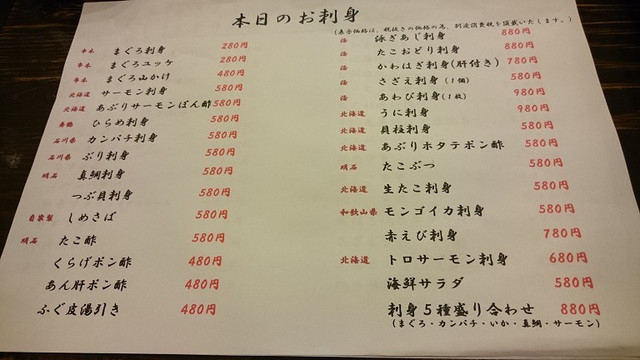 本日のお刺身
(表示価格は、税抜きの価格の為、別途消費税を頂戴いたします。)
まぐろ刺身 280円
まぐろユッケ 280円
まぐろ山かけ 480円
北海道 サーモン刺身 580円
北海道 あぶりサーモンぽん酢 580円
舞鶴 ひらめ刺身 580円
石川県 カンパチ刺身 580円
石川県 ぶり刺身 580円
明石 真鯛刺身 580円
つぶ貝刺身 580円
自家製 しめさば 580円
明石 たこ酢 580円
くらげポン酢 480円
あん肝ポン酢 480円
ふぐ皮湯引き 480円
活 泳ぎあじ刺身 880円
活 たこおどり刺身 880円
活 かわはぎ刺身(肝付き) 780円
活 さざえ刺身(1個) 580円
活 あわび刺身(1枚) 980円
北海道 うに刺身 980円
北海道 貝柱刺身 580円
北海道 あぶりホタテポン酢 580円
明石 たこぶつ 580円
北海道 生たこ刺身 580円
和歌山県 モンゴイカ刺身 580円
赤えび刺身 780円
北海道 トロサーモン刺身 680円
海鮮サラダ 580円
刺身5種盛り合わせ 880円
(まぐろ・カンパチ・いか・真鯛・サーモン)